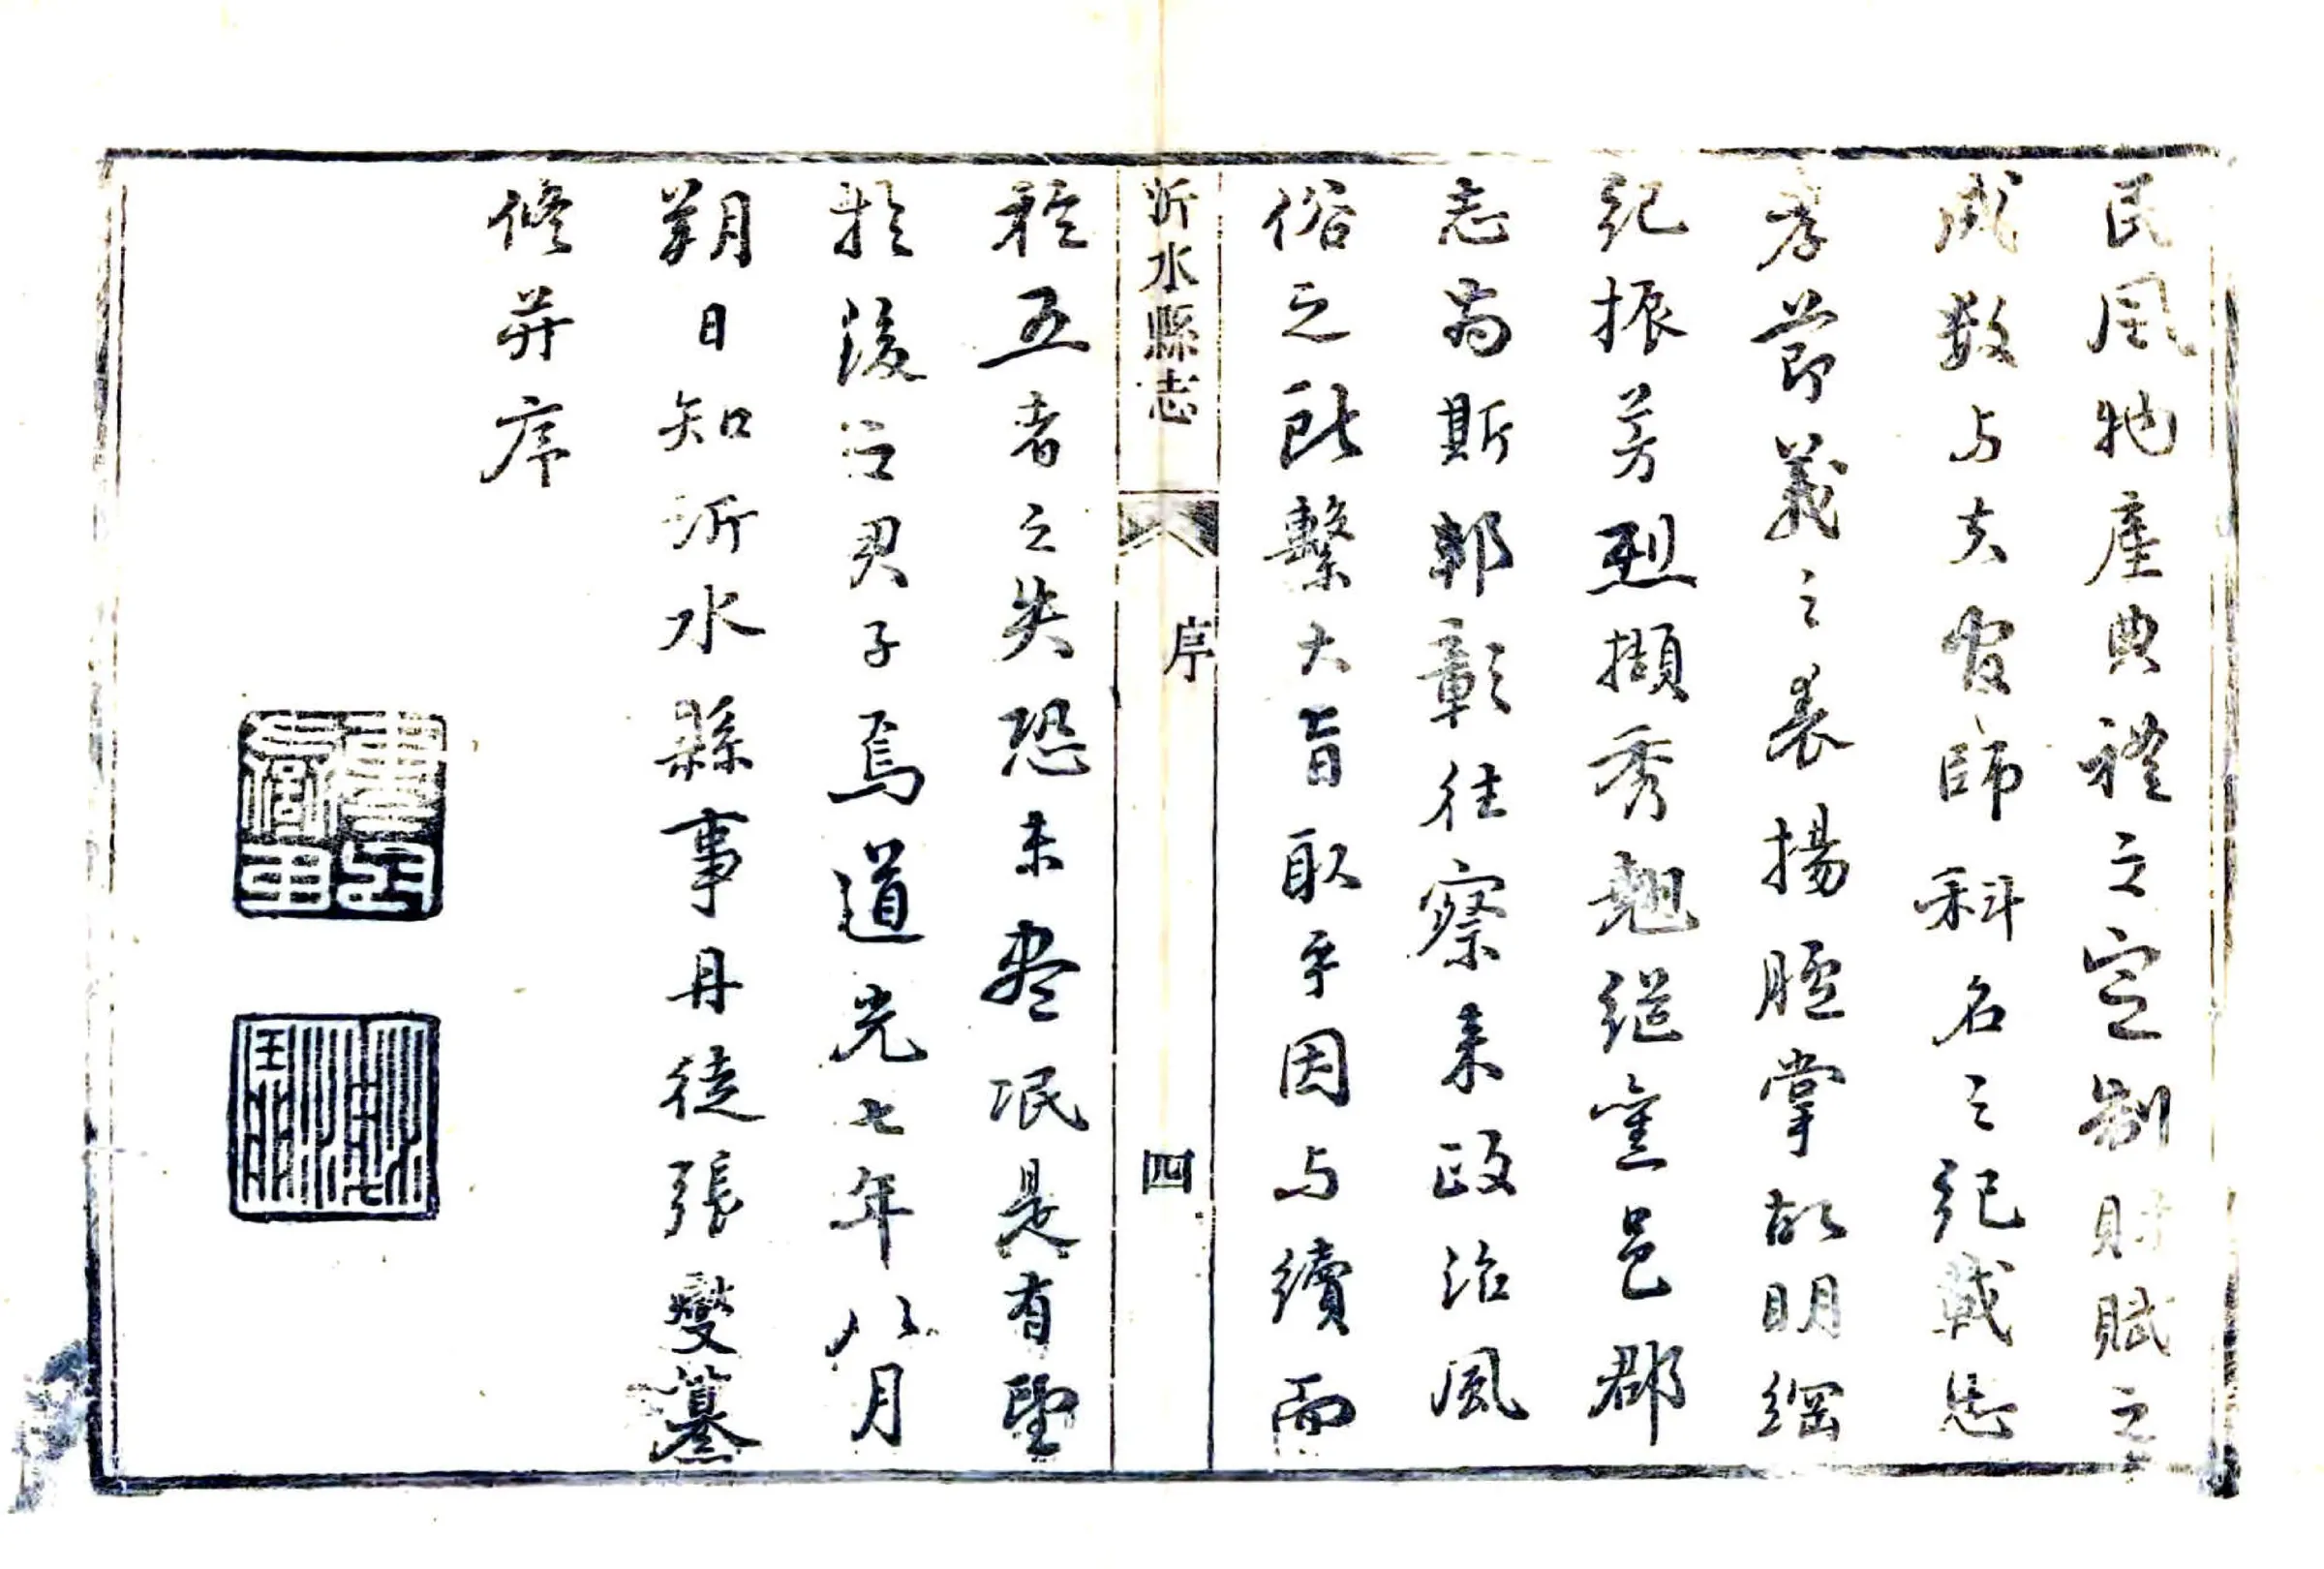 民風物產典禮之定制財賦之
成數与夫官師科名之紀載忠
孝節義之表揚臚掌故明綱
紀振芳烈擷秀翹继黨邑郡
志為斯邦彰往察来政治風
俗之所繫大旨取乎因与續而
沂水縣志
序
四
五者之失恐未盡泯是有望
於後之君子焉道光七年八月
朔日知沂水縣事丹徒張燮纂
修并序